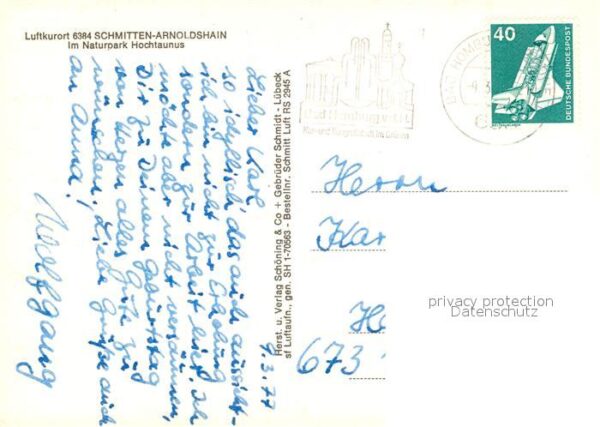 Luftkurort 6384 SCHMITTEN-ARNOLDSHAIN
Im Naturpark Hochtaunus
9.3.77
Lieber Karl,
so idyllisch das auch aussieht -
ich bin nicht zur Erholung
sondern zur Arbeit hier. Ich
möchte aber nicht versäumen,
Dir zu Deinem Geburtstag
von Herzen alles Gute zu
wünschen. Liebe Grüße auch
an Anna!
Wolfgang
Herst. u. Verlag Schöning & Co + Gebrüder Schmidt - Lübeck
sf Luftaufn., gen. SH 1-70563 - Bestellnr. Schmitt Luft RS 2945 A
Bad Homburg v.d.H.
Kur- und Kongreßstadt im Grünen
BAD HOMBURG
40
DEUTSCHE BUNDESPOST
Herrn
Kar
H
673
privacy protection
Datenschutz